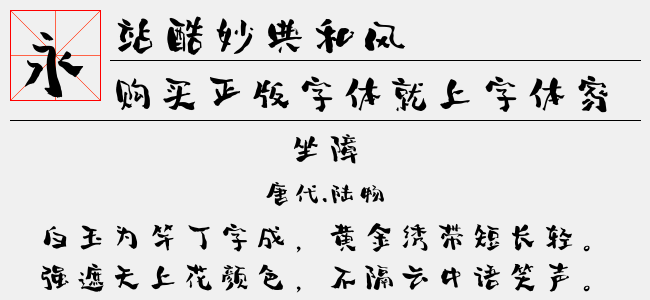 永
站酷妙典和风
购买正版字体就上字体家
坐障
唐代.陆畅
白玉为竿丁字成，黄金绣带短长轻。
强遮天上花颜色，不隔云中语笑声。